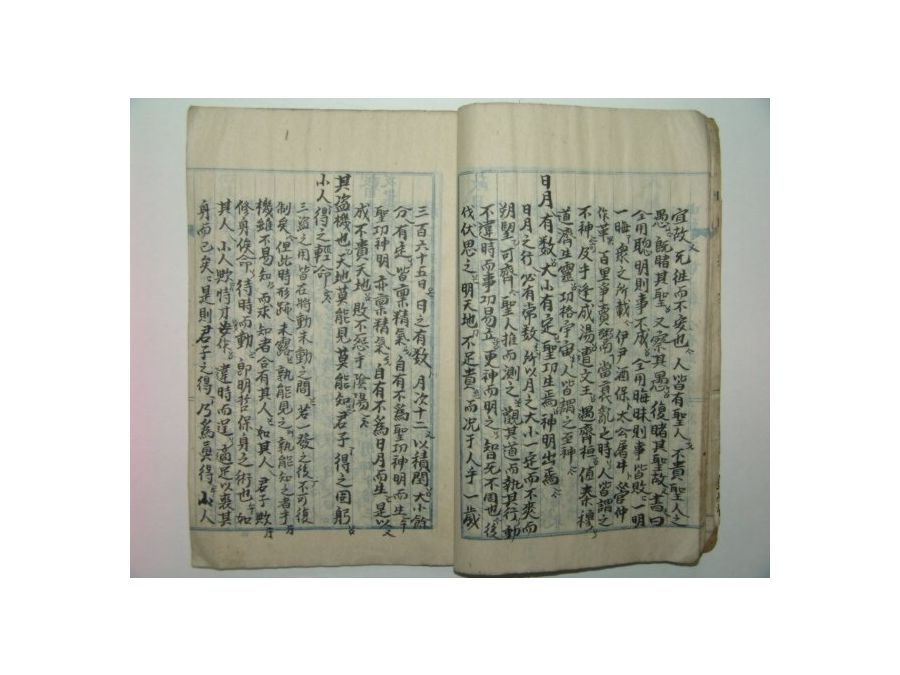 宜故無徃而不安也人皆有聖人不貴聖人之
愚既睹其聖又察其愚復睹其聖故書曰
全用聰明則事不成全用晦昧則事皆敗一明
一晦衆之所載伊尹酒保太公屠牛管仲
作革百里奚賣粥當衰亂之時人皆謂之
不神及乎逢成湯遭文王遇齊桓值秦穆
道濟生靈功格宇宙人皆謂之至神
日月有数大小有定聖功生焉神明出焉
日月之行必有常数所以月之大小一定而不爽而
朔閏可齊聖人推而測之觀其道而執其行動
不違時而事功易立更神而明之智无不周也後
伐伏思之明天地不足貴而况于人乎一歲
三百六十五日日之有数月次十二以積閏大小餘
分有定皆稟精氣自有不爲聖功神明而生
聖功神明亦稟精氣自有不爲日月而生是以
成不貴天地敗不怨乎陰陽
其盗機也天地莫能見莫能知君子得之固躬
小人得之輕命
三盗之用皆在將動未動之間若一發之後不可復
制矣但此時形跡未露孰能見之孰能知之者乎
機雖不易知而求知者合有其人如其人君子歟
修身俟命待時而動即明哲保身之術也如
其人小人歟恃才妄作違時而逞適足以喪其
身而已矣是則君子之得乃爲真得小人